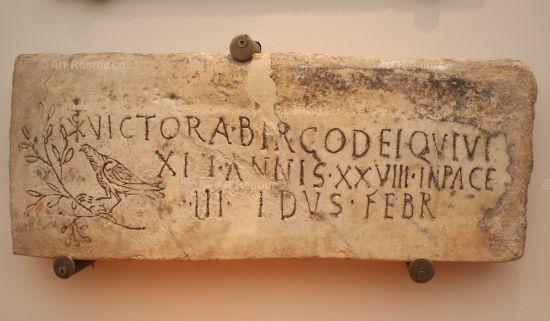 VICTORA·BIRGODEIQVIVI
XIT·ANNIS·XXVIII·INPACE
·III· IDVS·FEBR